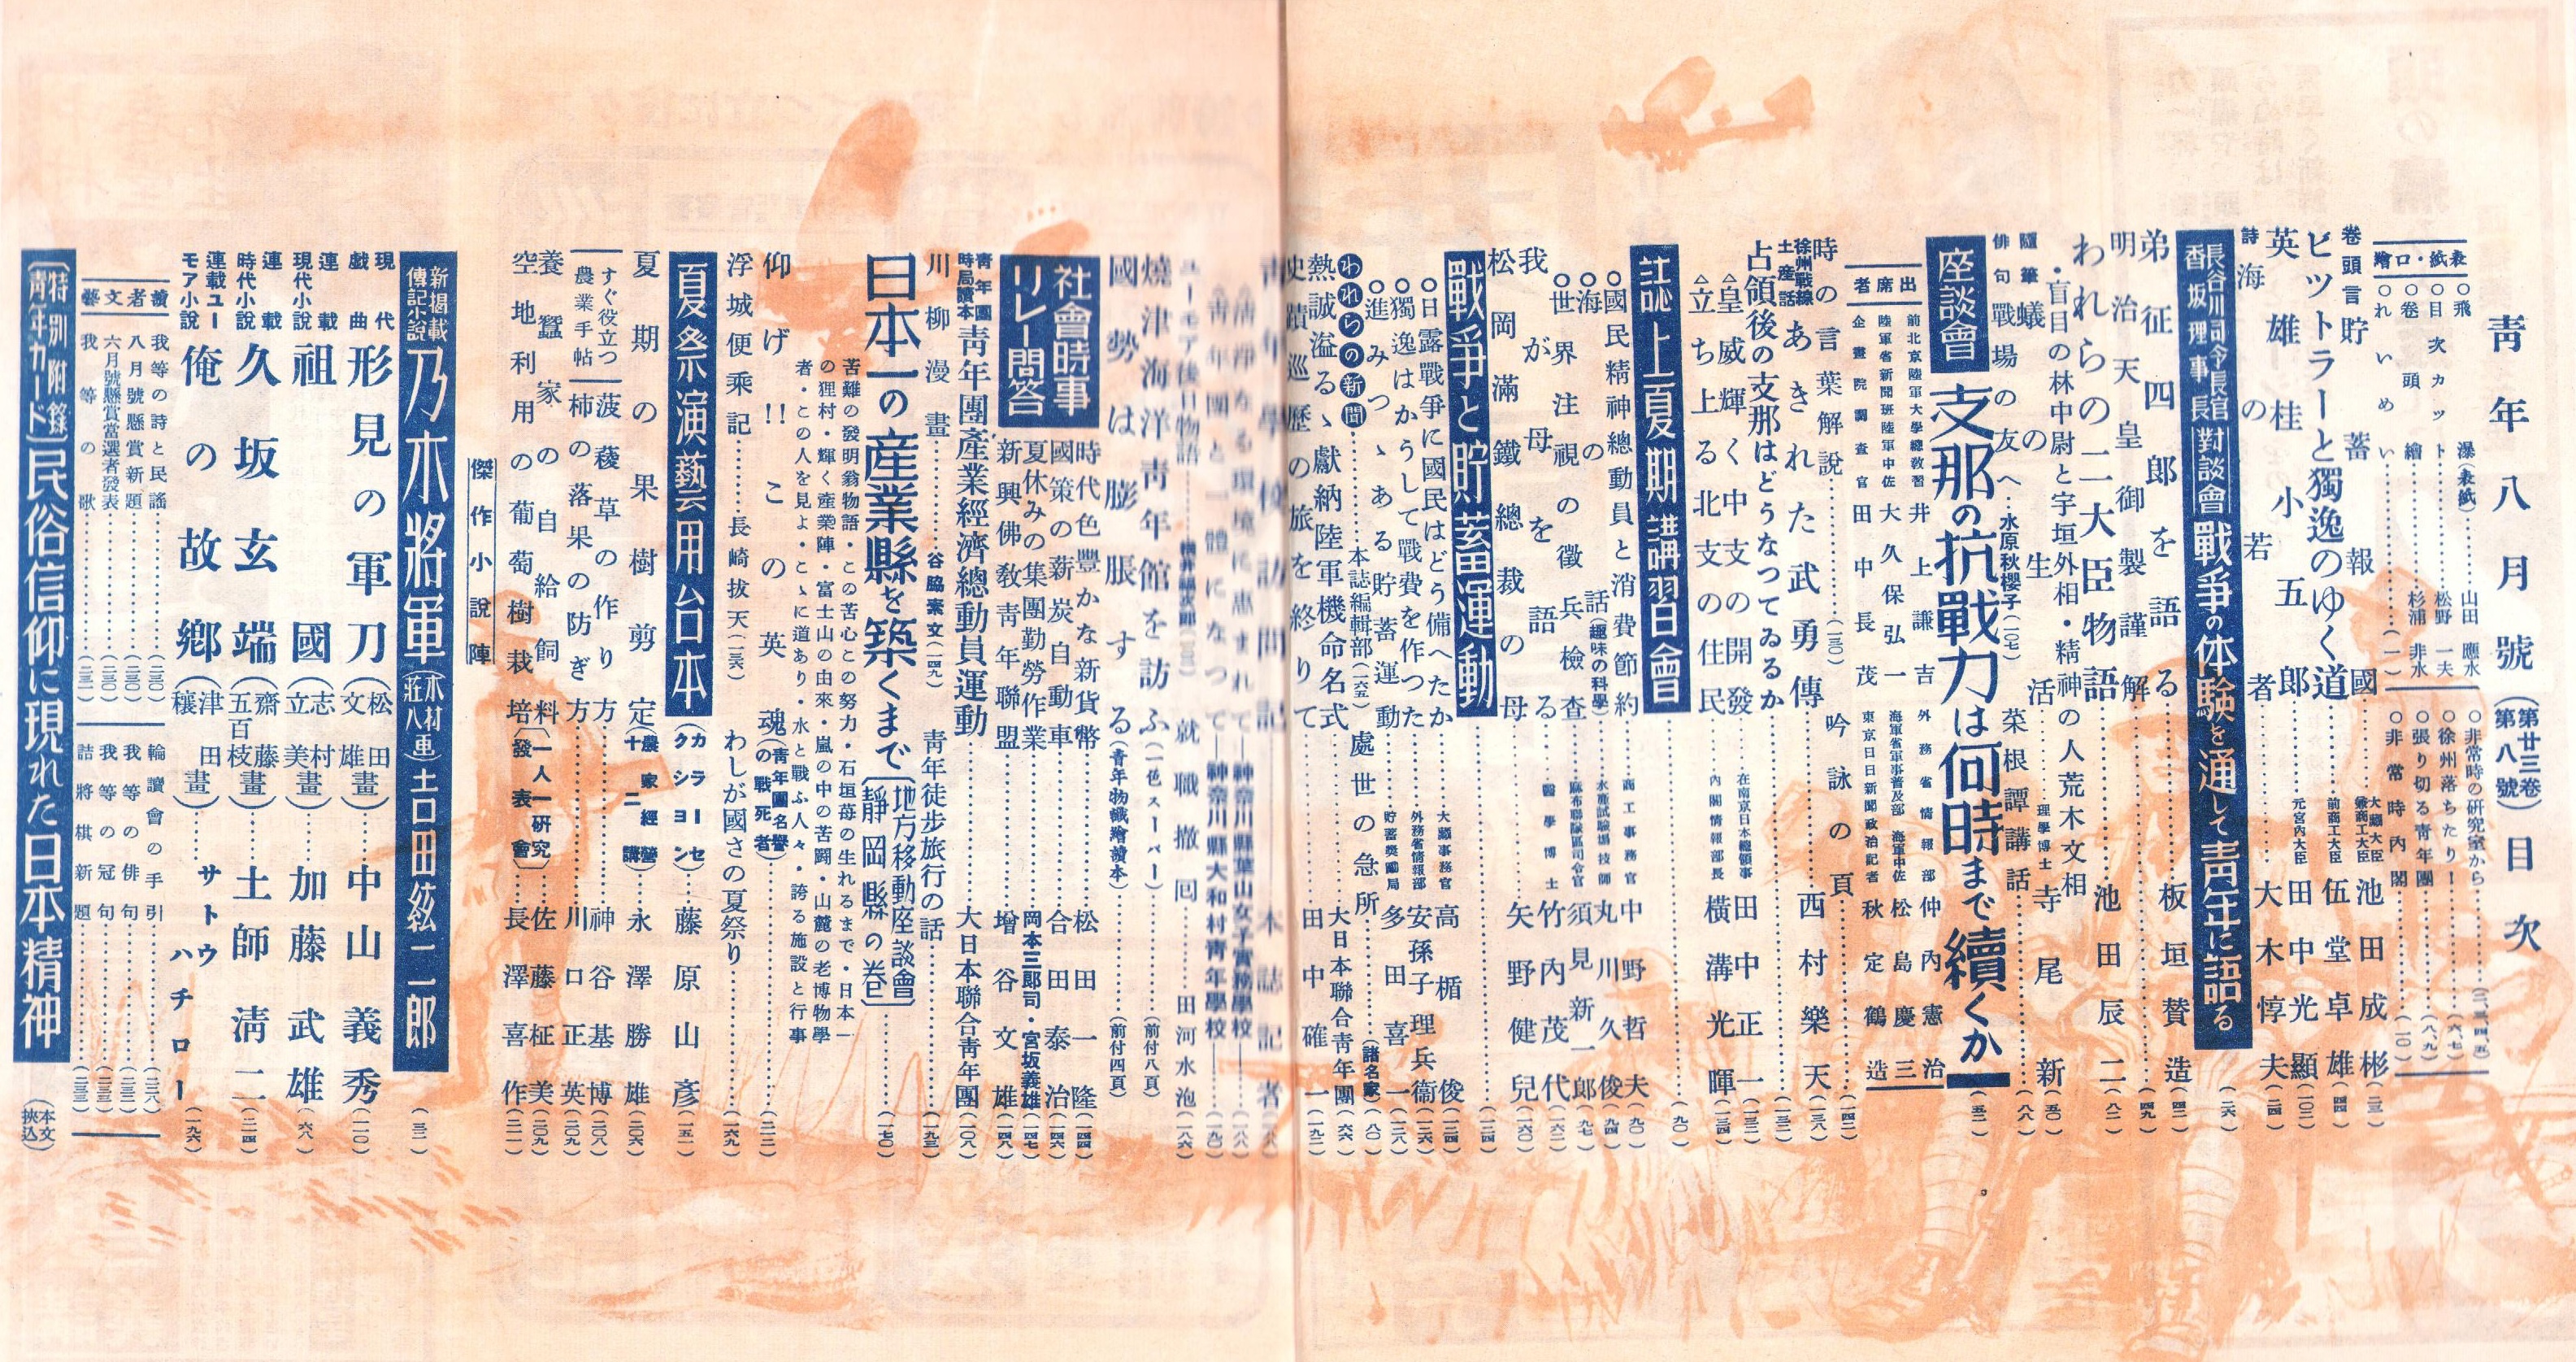 靑年八月號（第廿三卷第八號）目次
表紙・口繪
○飛瀑（表紙）……山田應水
○目次カット……松野一夫
○卷頭繪……杉浦非水
○れいめい……（一）
○非常時の研究室から……
○徐州落ちたりー……（六・七）
○張り切る靑年團……（八・九）
○非常時內閣……（一〇）
卷頭言 貯蓄報國……大藏大臣兼商工大臣 池田成彬（二三）
ヒットラーと獨逸のゆく道……前商工大臣 伍堂卓雄（四四）
英雄桂小五郎……元宮內大臣 田中光顯（一〇二）
詩 海の若者……大木惇夫（二四）
長谷川司令長官 香坂理事長 對談會 戰爭の体驗を通して靑年に語る……（二六）
弟征四郎を語る……板垣贊造（四二）
明治天皇御製謹解……（四九）
われらの二大臣物語……池田辰二（八二）
・盲目の林中尉と宇垣外相・精神の人荒木文相
隨筆 蟻の生活……理學博士 寺尾新（五〇）
俳句 戰場の友へ…水原秋櫻子（一〇七）
菜根譚講話……（八八）
座談會 支那の抗戰力は何時まで續くか（五二）
出席者
前北京陸軍大學總敎習 井上謙吉
陸軍省新聞班陸軍中佐 大久保弘一
企畫院調査官 田中長茂
外務省情報部 仲內憲治
海軍省軍事普及部 海軍中佐 松島慶三
東京日日新聞政治記者 秋定鶴造
時の言葉解說……（一三〇）
吟詠の頁……（一四二）
徐州戰線土產話 あきれた武勇傳……西村樂天（一三八）
占領後の支那はどうなつてゐるか……（一三二）
△皇威輝く中支の開發……在南京日本總領事 田中正一（一三二）
△立ち上る北支の住民……內閣情報部長 橫溝光暉（一三四）
誌上夏期講習會……（九〇）
○國民精神總動員と消費節約……商工事務官 中野哲夫（九〇）
○海の話（趣味の科學）……水產試驗場技師 丸川久俊（九四）
○世界注視の徵兵檢査……麻布聯隊區司令官 須見新一郎（九七）
我が母を語る……醫學博士 竹內茂代（一六二）
松岡滿鐵總裁の母……矢野健兒（一六〇）
戰爭と貯蓄運動……（一二四）
○日露戰爭に國民はどう備へたか……大藏事務官 高楯俊（一二四）
○獨逸はかうして戰費を作つた……外務省情報部 安孫子理兵衞（一二六）
○進みつゝある貯蓄運動……貯蓄奬勵局 多田喜一（一二八）
われらの新聞……本誌編輯部（一六五）
處世の急所……（諸名家）（八〇）
熱誠溢るゝ獻納陸軍機命名式……大日本聯合靑年團（六六）
史蹟巡歷の旅を終りて……田中確一（一九二）
靑年學校訪問記……本誌記者
淸淨なる環境に惠まれて――神奈川縣葉山女子實務學校――
靑年團と一體になつて――神奈川縣大和村靑年學校――（一九〇）
ユーモア後日物語……
就職撤囘……田河水泡（一八六）
燒津海洋靑年館を訪ふ（一色スーパー）……（前付八頁）
國勢は膨脹する（靑年物識繪讀本）……（前付四頁）
社會時事リレー問答
時代色豐かな新貨幣……松田一隆（一四四）
國策の薪炭自動車……合田泰治（一四六）
夏休みの集團勤勞作業……岡本三郎司・宮坂義雄（一四七）
新興佛敎靑年聯盟……增谷文雄（一四八）
靑年團時局讀本 靑年團產業經濟總動員運動……大日本聯合靑年團（一〇八）
川柳漫畫……谷脇素文（一四九）
靑年徒步旅行の話……（一九三）
日本一の產業縣を築くまで〔地方移動座談會 靜岡縣の卷〕……（一七〇）
苦難の發明翁物語・この苦心この努力・石垣苺の生れるまで・日本一の狸村・輝く產業陣・富士山の由來・嵐の中の苦鬪・山麓の老博物學者・この人を見よ・こゝに道あり・水と戰ふ人々・誇る施設と行事
仰げ!!この英魂（靑年團名譽の戰死者）……（二二二）
浮城便乘記……長崎拔天（一三六）
わしが国さの夏祭り……（一六九）
夏祭演藝用台本（カラーセクシヨン）……藤原山彥（一五一）
夏の果樹剪定（農家經營十二講）……永澤勝雄（二〇六）
すぐ役立つ農業手帖
菠薐草の作り方……神谷基博（二〇八）
柿の落果の防ぎ方……川口正英（二〇九）
養蠶家の自給飼料〔一人一硏究發表會〕……佐藤柾美（二〇九）
空地利用の葡萄樹栽培……長澤喜作（二一一）
傑作小說陣
新揭載傳記小說 乃木將軍（木村莊八畫）吉田絃二郎（三二）
現代戲曲 形見の軍刀（松田文雄畫）……中山義秀（一一〇）
連載現代小說 祖國（志村立美畫）……加藤武雄（六八）
連載時代小說 久坂玄端（齋藤五百枝畫）……土師淸二（二一四）
連載ユーモア小說 俺の故鄕（津田穰畫）……サトウハチロー（一九六）
讀者文藝
我等の詩と民謠……（二三〇）
八月號懸賞新題……（二三〇）
六月號懸賞當選者發表……（二三〇）
我等の歌……（二三一）
輪讀會の手引……（二二八）
我等の俳句……（二三二）
我等の冠句……（二三三）
詰將棋新題……（二三三）
〔特別附錄 靑年カード〕民俗信仰に現れた日本精神（本文挾込）